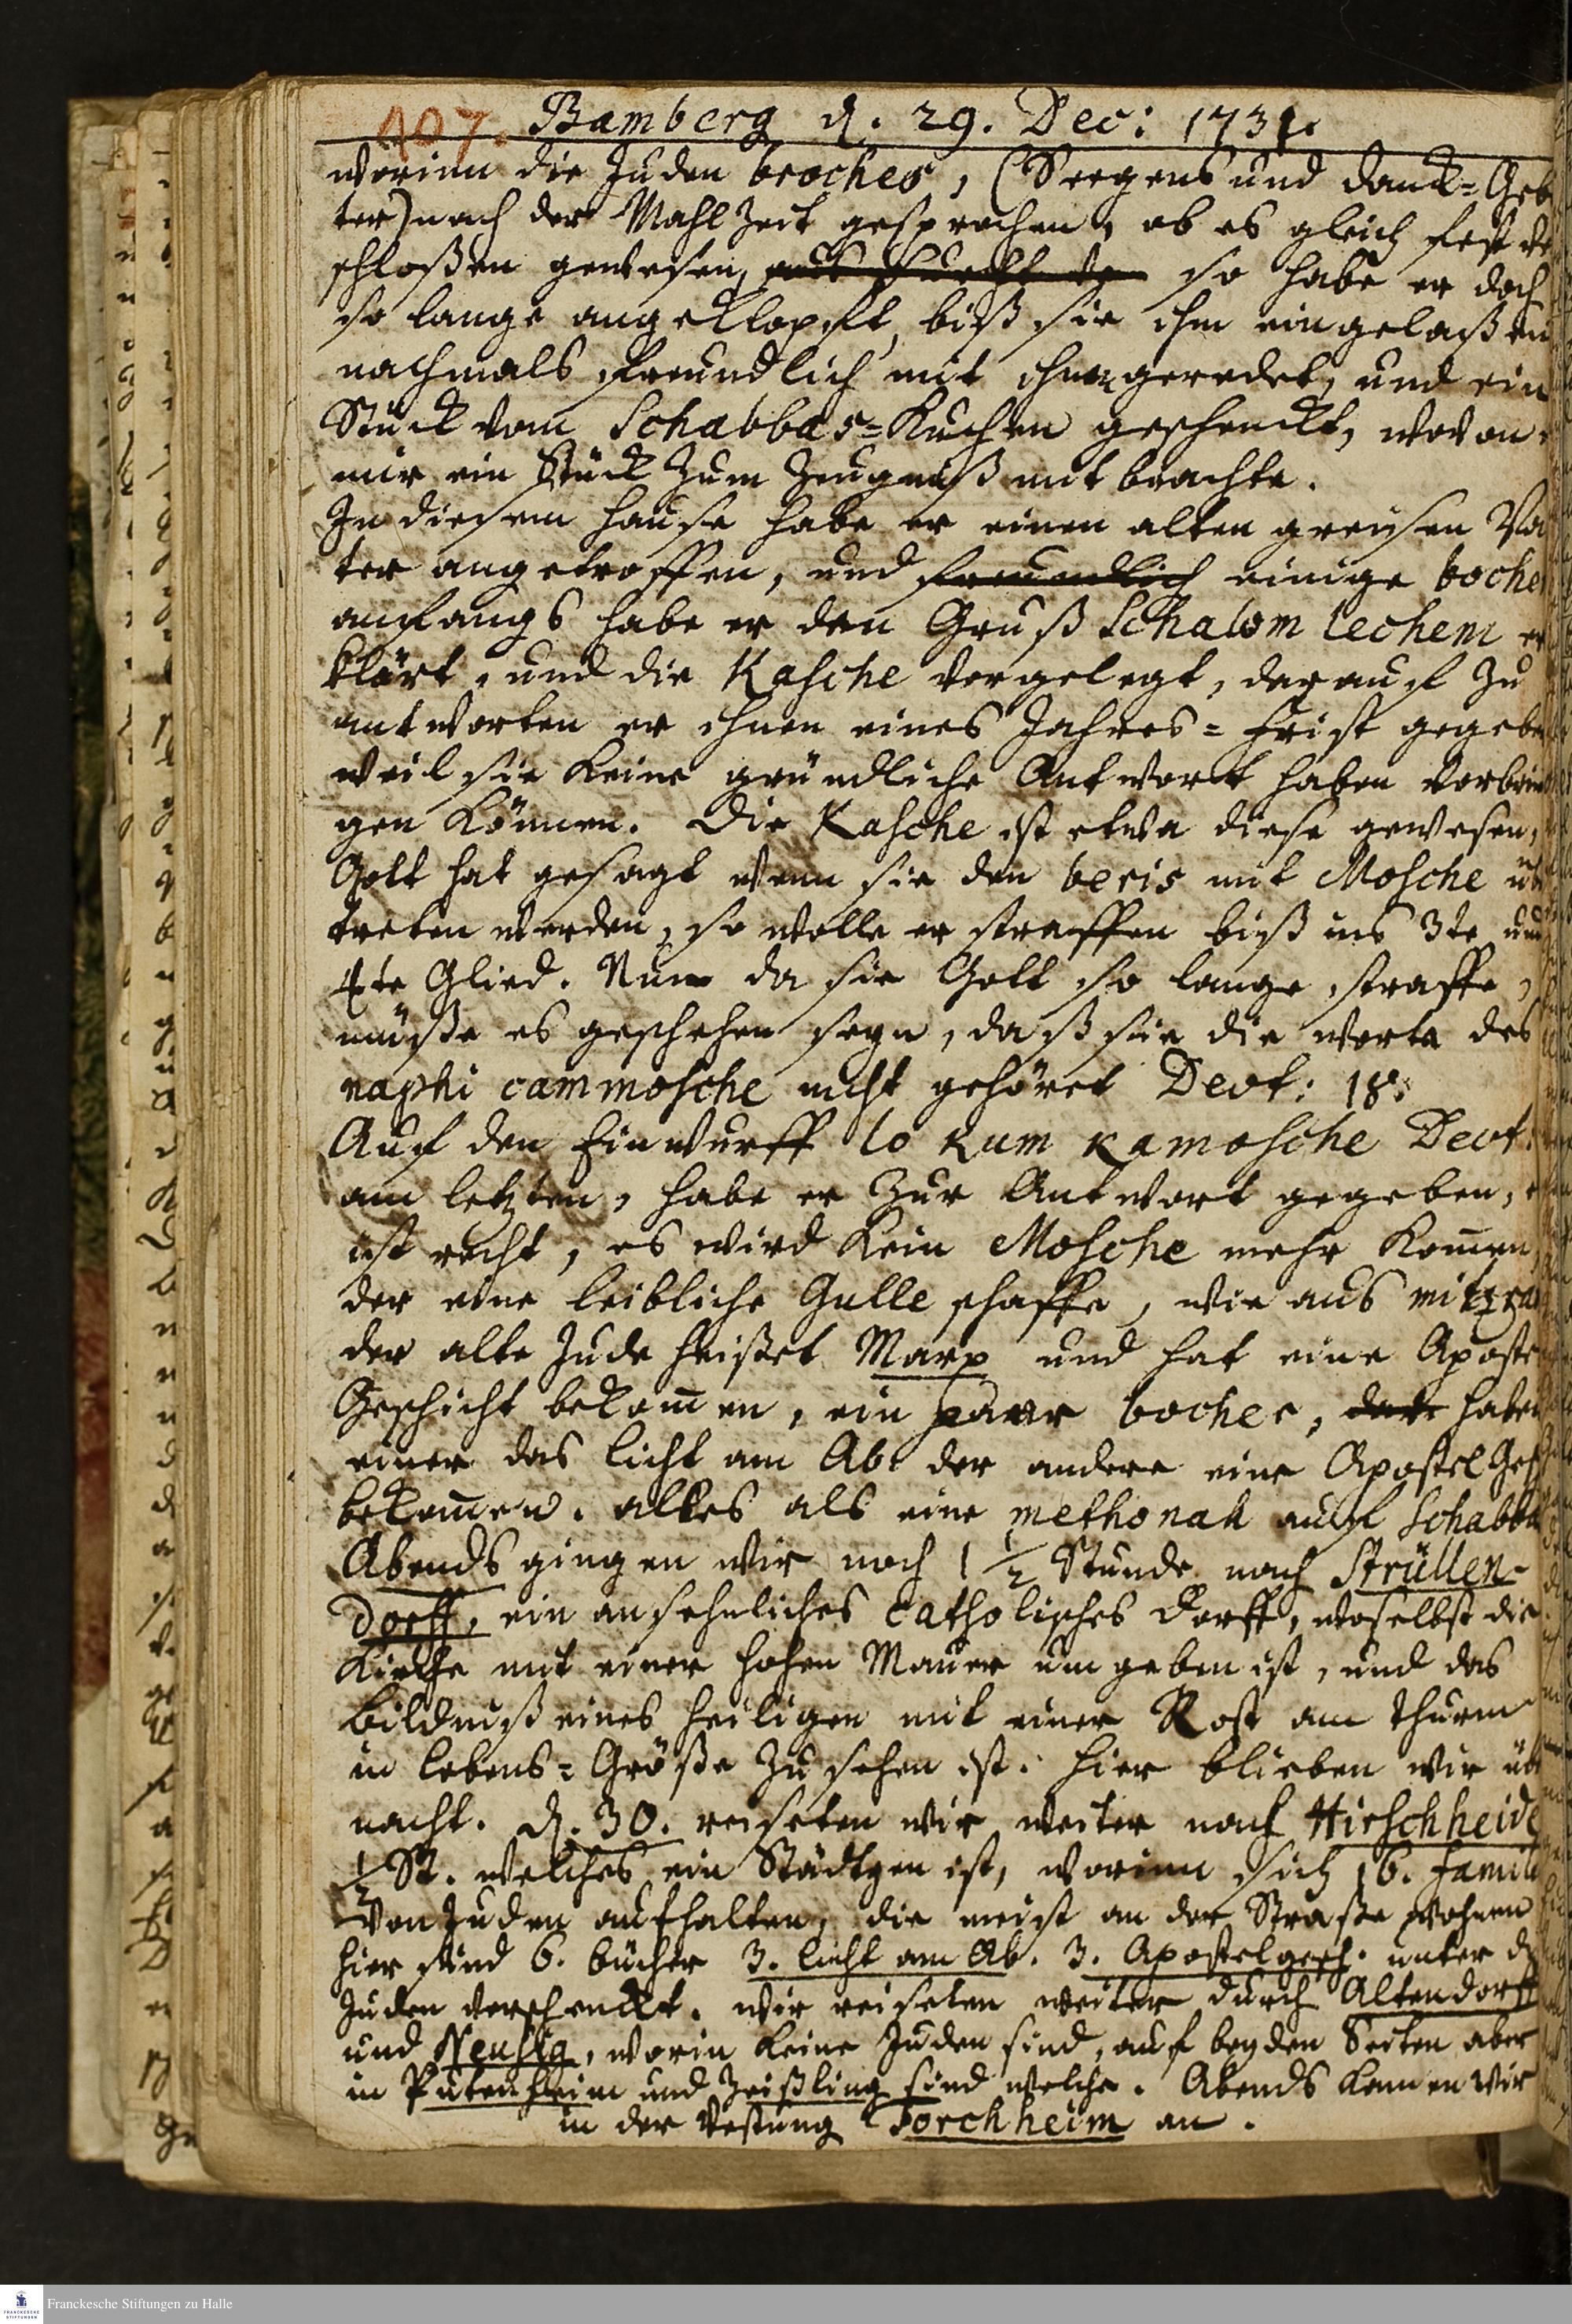 107. Bamberg d. 29. Dec: 1731.
worinn die Juden broches, (Seegens und Danck=Geb
ter) nach der Mahlzeit gesprochen, ob es gleich fest ver
schloßen gewesen, so habe er doch
so lange angeklopfft, biß sie ihn eingelaßen
nachmals freundlich mit ihm geredet, und ein
Stück vom Schabbas=Kuchen geschenckt, wovon
mir ein Stück zum Zeugniß mit brachte.
In diesem Hause habe er einen alten greisen Va
ter angetroffen, und freundlich einige bocher
anfangs habe er den Gruß Schalom lechem er
klärt, und die Kasche vorgelegt, darauf zu
antworten er ihnen eines Jahres=Frist gegeben
weil sie keine gründliche Antwort haben vorbrin
gen können. Die Kasche ist etwa diese gewesen,
Gott hat gesagt wenn sie den beris mit Mosche üb
treten werden, so wolle er straffen biß ins 3te und
4te Glied. Nun da sie Gott so lange straffe,
müße es geschehen seyn, daß sie die worte des
naphi cammosche nicht gehöret Deot: 18.
Auf den Einwurff lo kum kamosche Deot:
am letzten, habe er zur Antwort gegeben,
ist recht, es wird kein Mosche mehr kom̄en,
der eine leibliche Gulle schaffe, wie aus mitzra
der alte Jude heißet Marx und hat eine Apostel
Geschicht bekom̄en, ein paar bocher, haben
einer das licht am Ab. der andere eine Apostel Ges
bekom̄en. alles als eine methonah auf Schabba
Abends gingen wir noch 1 1/2 Stunde nach Strüllen-
dorff, ein ansehnliches catholisches Dorff, woselbst die
Kirche mit einer hohen Mauer umgeben ist, und das
Bildnuß eines Heiligen mit einer Rost am Thurm
in Lebens=Größe zu sehen ist. Hier blieben wir üb
nacht. d. 30. reiseten wir weiter nach Hirschheide
1/2 St. welches ein Städtgen ist, worinn sich 16. Famil
von Juden aufhalten, die meist an der Straße wohnen
hier sind 6. bücher 3. licht am Ab. 3. Apostelgesch. unter d
Juden verschenckt. Wir reiseten weiter durch Altendorff
und Neusig, worin keine Juden sind, auf beyden Seiten aber
in Putenheim und Zeißling sind welche. Abends kamen wir
in der Vestung Forchheim an.
Franckesche Stiftungen zu Halle